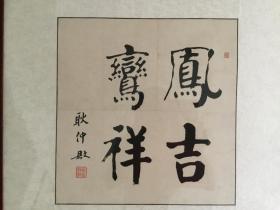 鳳吉
鸞祥
耿仲敭